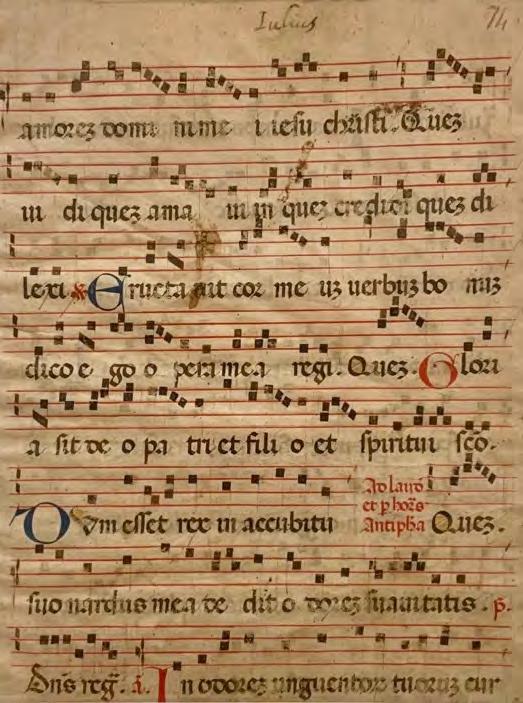 Iulius 74
amorez domi nime i iesu christi. Quez
ui di quez ama ui in quez credidi quez di
lexi. Eructa uit cor me uz uerbuz bo nuz
dico e go o pera mea regi. Quez. Glori
a sit de o pa tri et fili o et spiritui sco.
Dum esset rex in accubitu Ad laud
et p horas
Antipha Quez.
suo nardus mea de dit o dorez suauitatis. p.
Dns reg. a. In odorez unguentor tuoruz cur